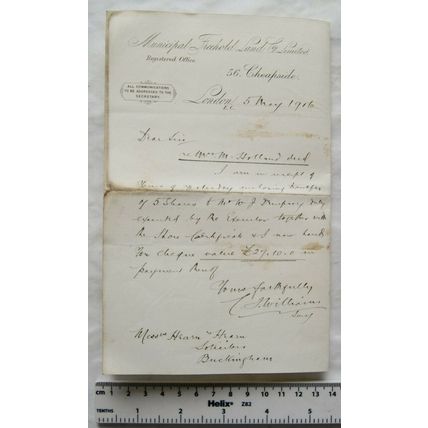 Municipal Freehold Land Co Limited
Registered Office
56, Cheapside,
ALL COMMUNICATIONS
TO BE ADDRESSED TO THE
SECRETARY.
London, E.C. 5 May 1906
Dear Sirs
re Mrs M. Holland decd
I am in receipt of
Yours of Yesterday enclosing transfer
of 5 Shares to Mr W J duly
executed by the Executor together with
the Share Certificate & I now hand
You cheque value £27.10.0 in
payment thereof
Yours faithfully
C J Williams
Secy
Messrs Hearn & Hearn
Solicitors
Buckingham
cm 1 2 3 4 5 6 7 8 9 10 11 12 13 14
TENTHS
Helix
Z82
1 2 3 4 5